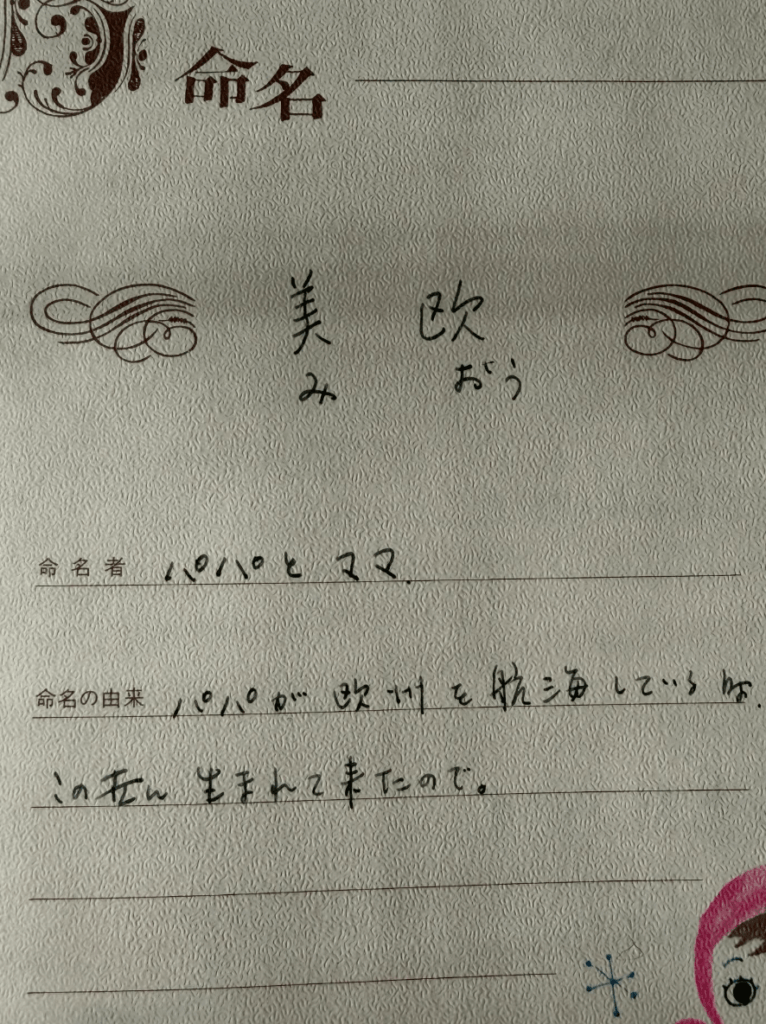 命名
美 欧
み おう
命名者 パパと ママ.
命名の由来 パパが 欧州を 航海している時.
この世に 生まれて来たので。